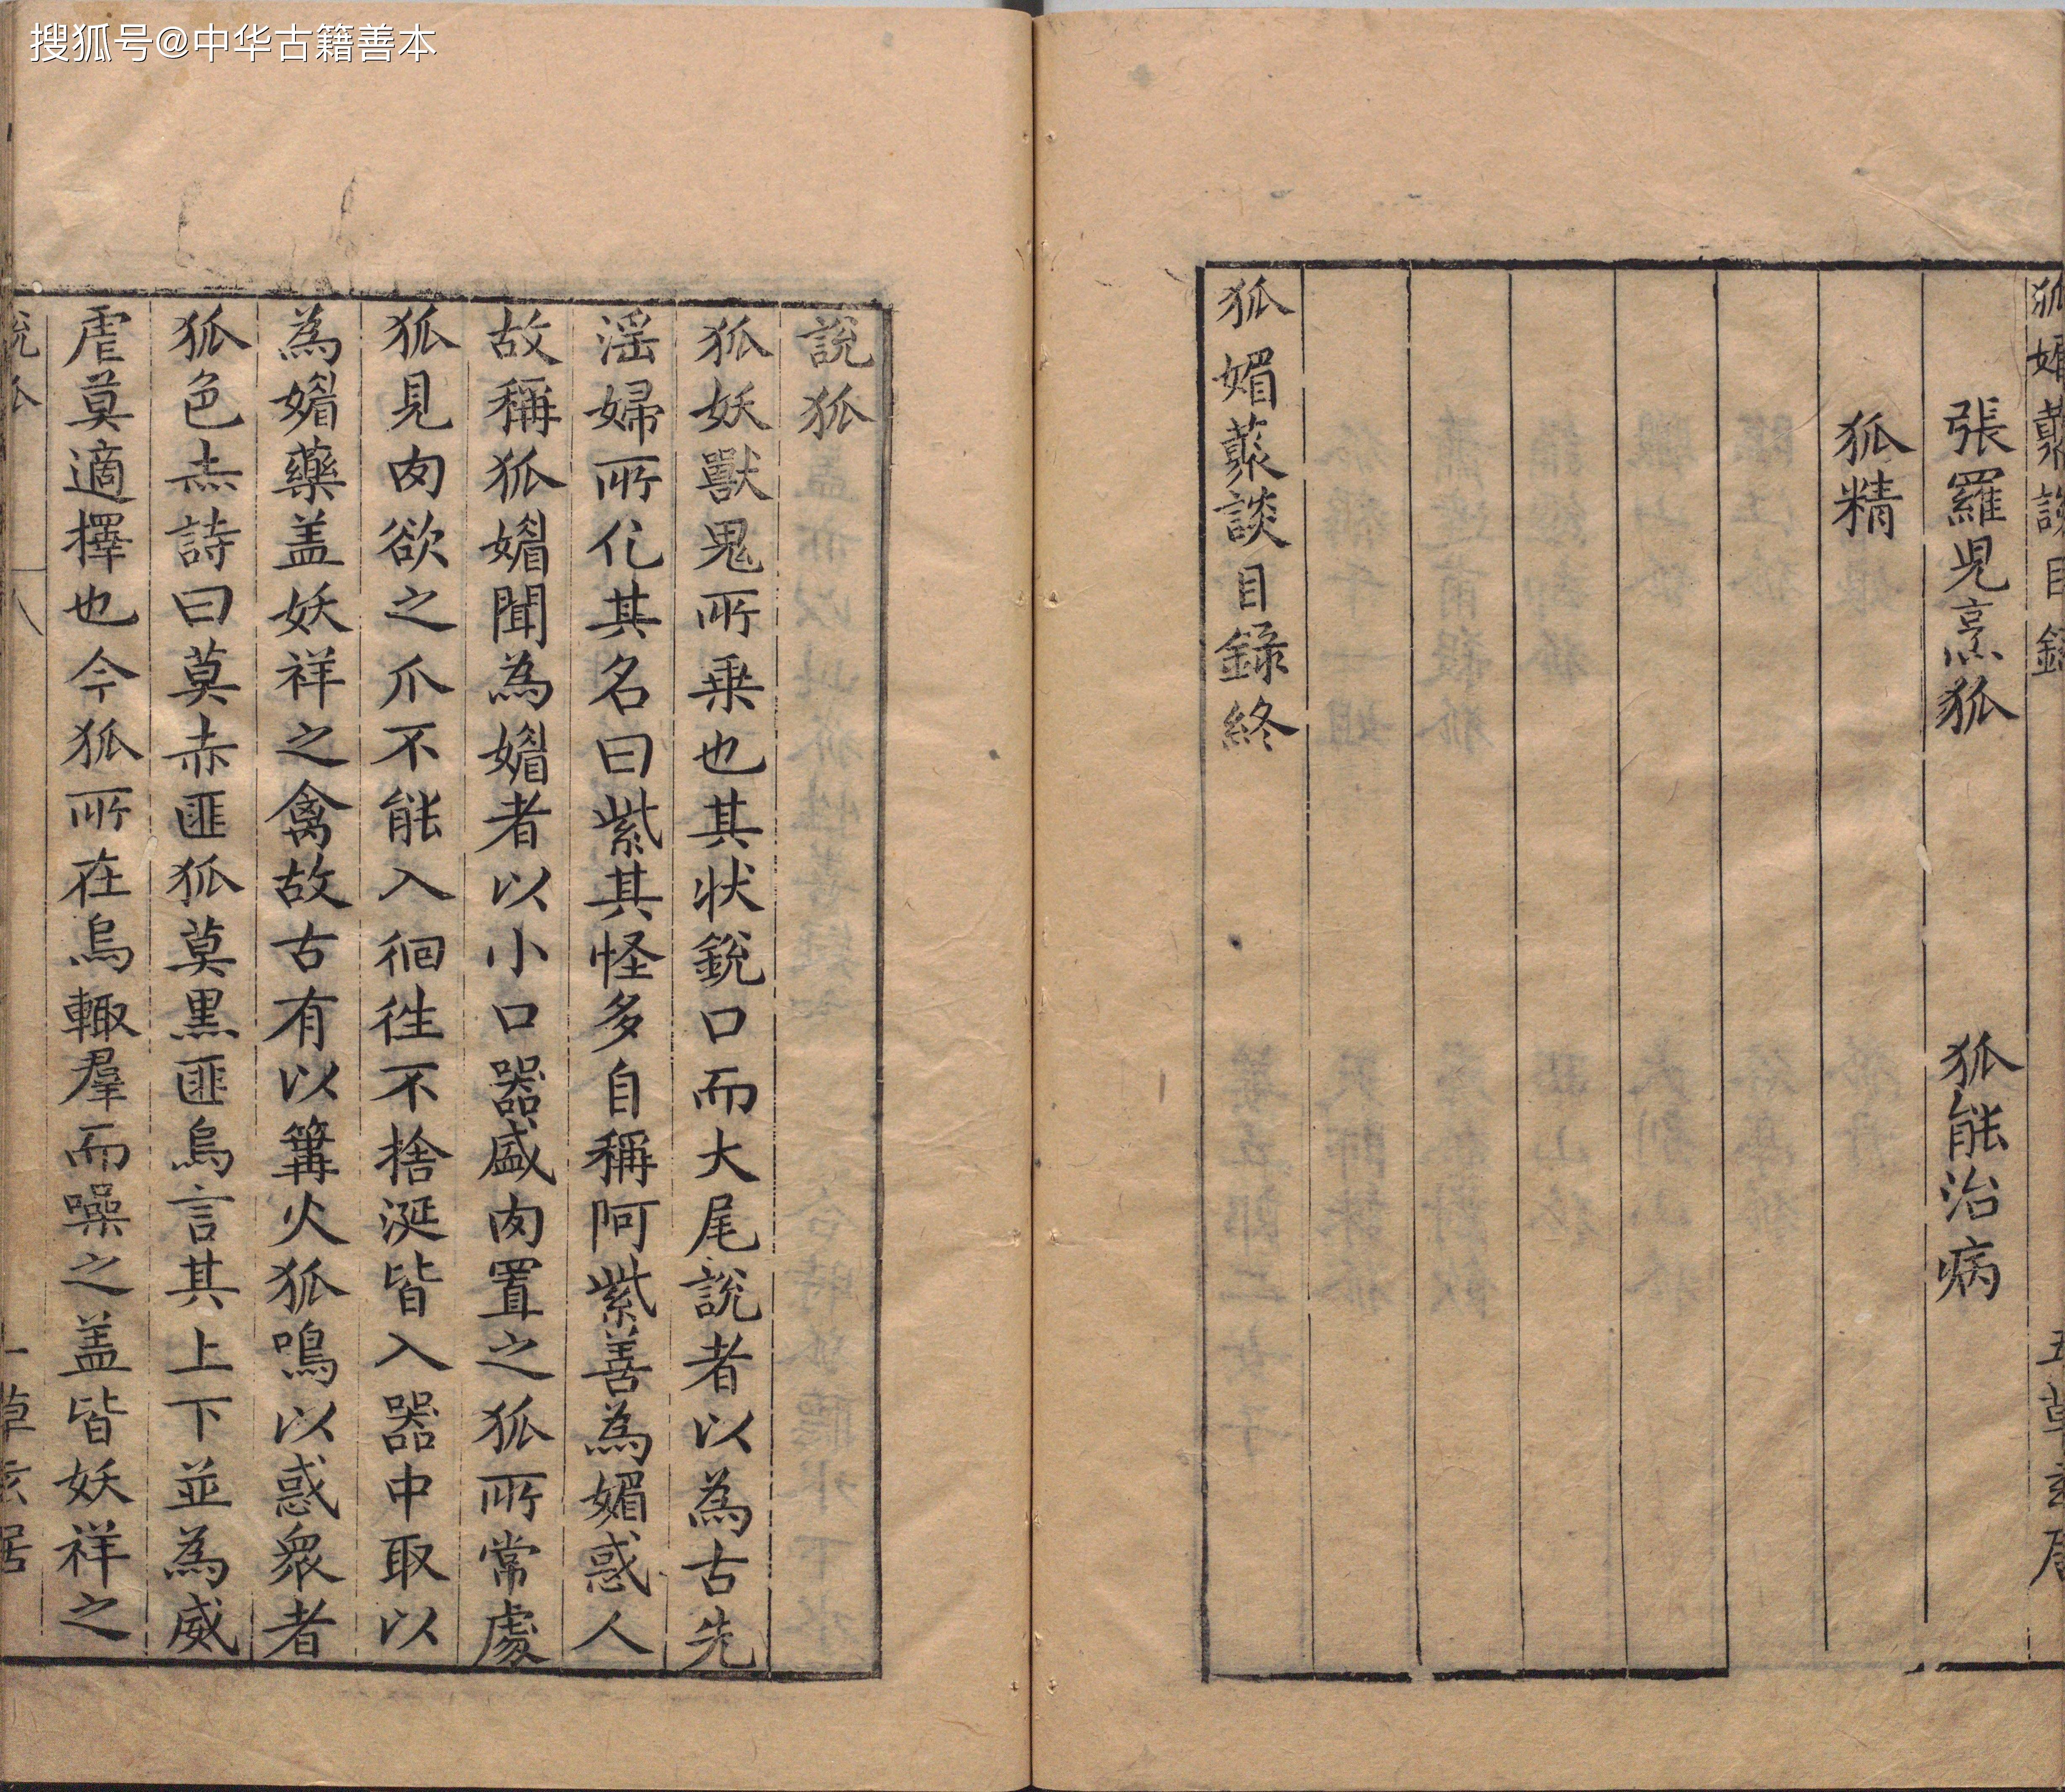 搜狐号@中华古籍善本
張羅児烹狐 狐能治病
狐精
狐媚藂談目錄終
說狐
狐妖獸鬼所乗也其状銳口而大尾說者以為古先
淫婦所化其名曰紫其怪多自稱阿紫善為媚惑人
故稱狐媚聞為媚者以小口器盛肉置之狐所常處
狐見肉欲之爪不能入徊徃不捨涎皆入器中取以
為媚藥盖妖祥之禽故古有以篝火狐鳴以惑衆者
狐色赤詩曰莫赤匪狐莫黒匪烏言其上下並為威
虐莫適擇也今狐所在烏輙羣而噪之盖皆妖祥之